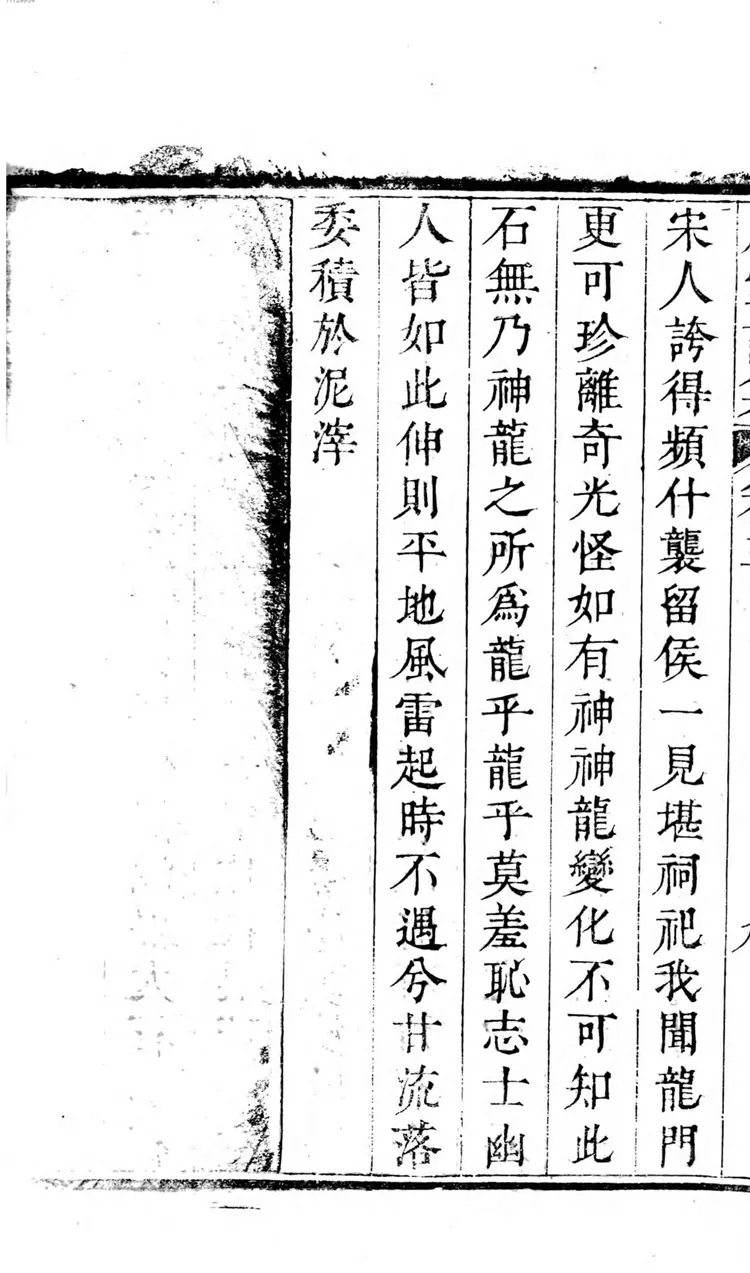 宋人誇得頻什襲留侯一見堪祠祀我聞龍門
更可珍離奇光怪如有神神龍變化不可知此
石無乃神龍之所為龍乎龍乎莫羞恥志士幽
人皆如此伸則平地風雷起時不遇兮甘流落
委積於泥滓